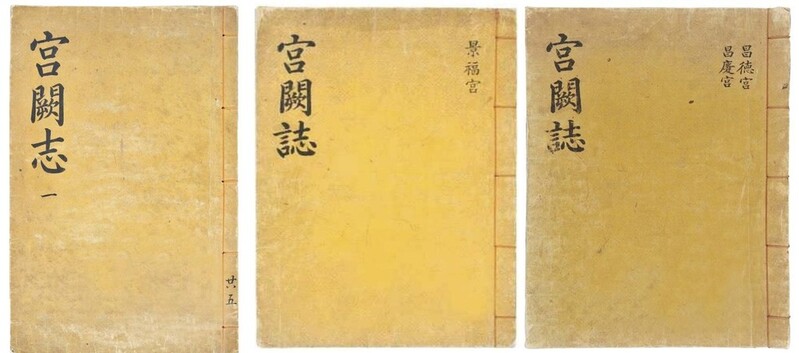 宮闕志
一
廿五
宮闕誌
景福宮
宮闕誌
昌德宮
昌慶宮